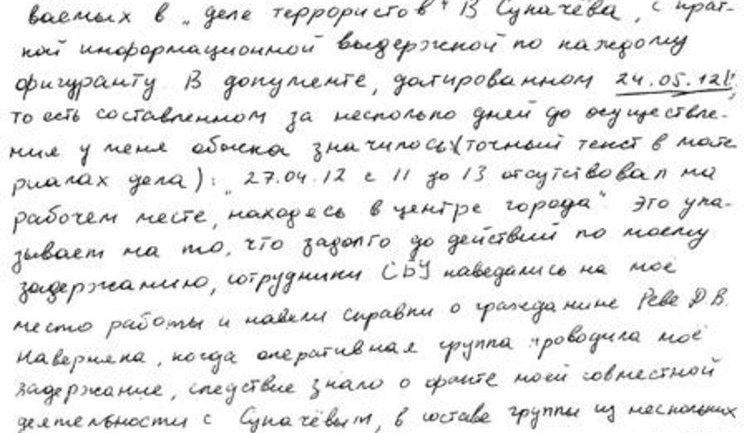 ваемых в „деле террористов" В Сукачёва, с крат-
кой информационной выдержкой по каждому
фигуранту. В документе, датированном 24.05.12г,
то есть составленном за несколько дней до осуществле-
ния у меня обыска значилось (точный текст в мате
риалах дела): „27.04.12 с 11 до 13 отсутствовал на
рабочем месте, находясь в центре города" Это ука-
зывает на то, что задолго до действий по моему
задержанию, сотрудники СБУ наведались на моё
место работы и навели справки о гражданине Реве Д.В.
Наверняка, когда оперативная группа проводила моё
задержание, следствие знало о факте моей совместной
деятельности с Сукачёвым, в составе группы из нескольких